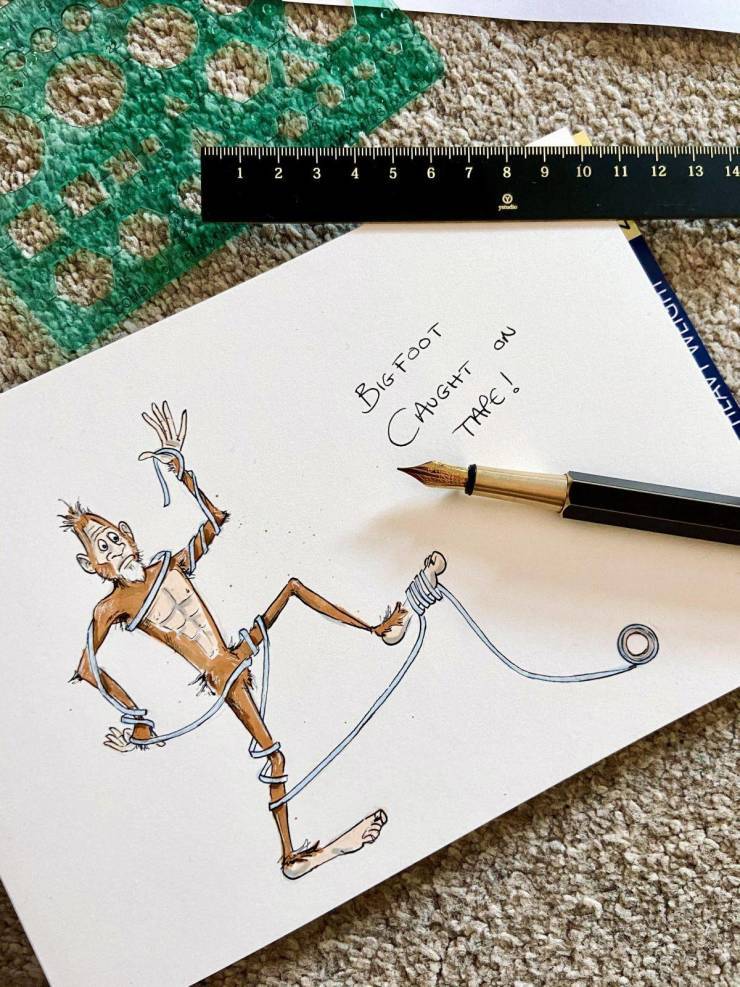 1 2 3 4 5 6 7 8 9 10 11 12 13 14
ystudio
HEAVY WEIGHT
BIGFOOT
CAUGHT ON
TAPE!